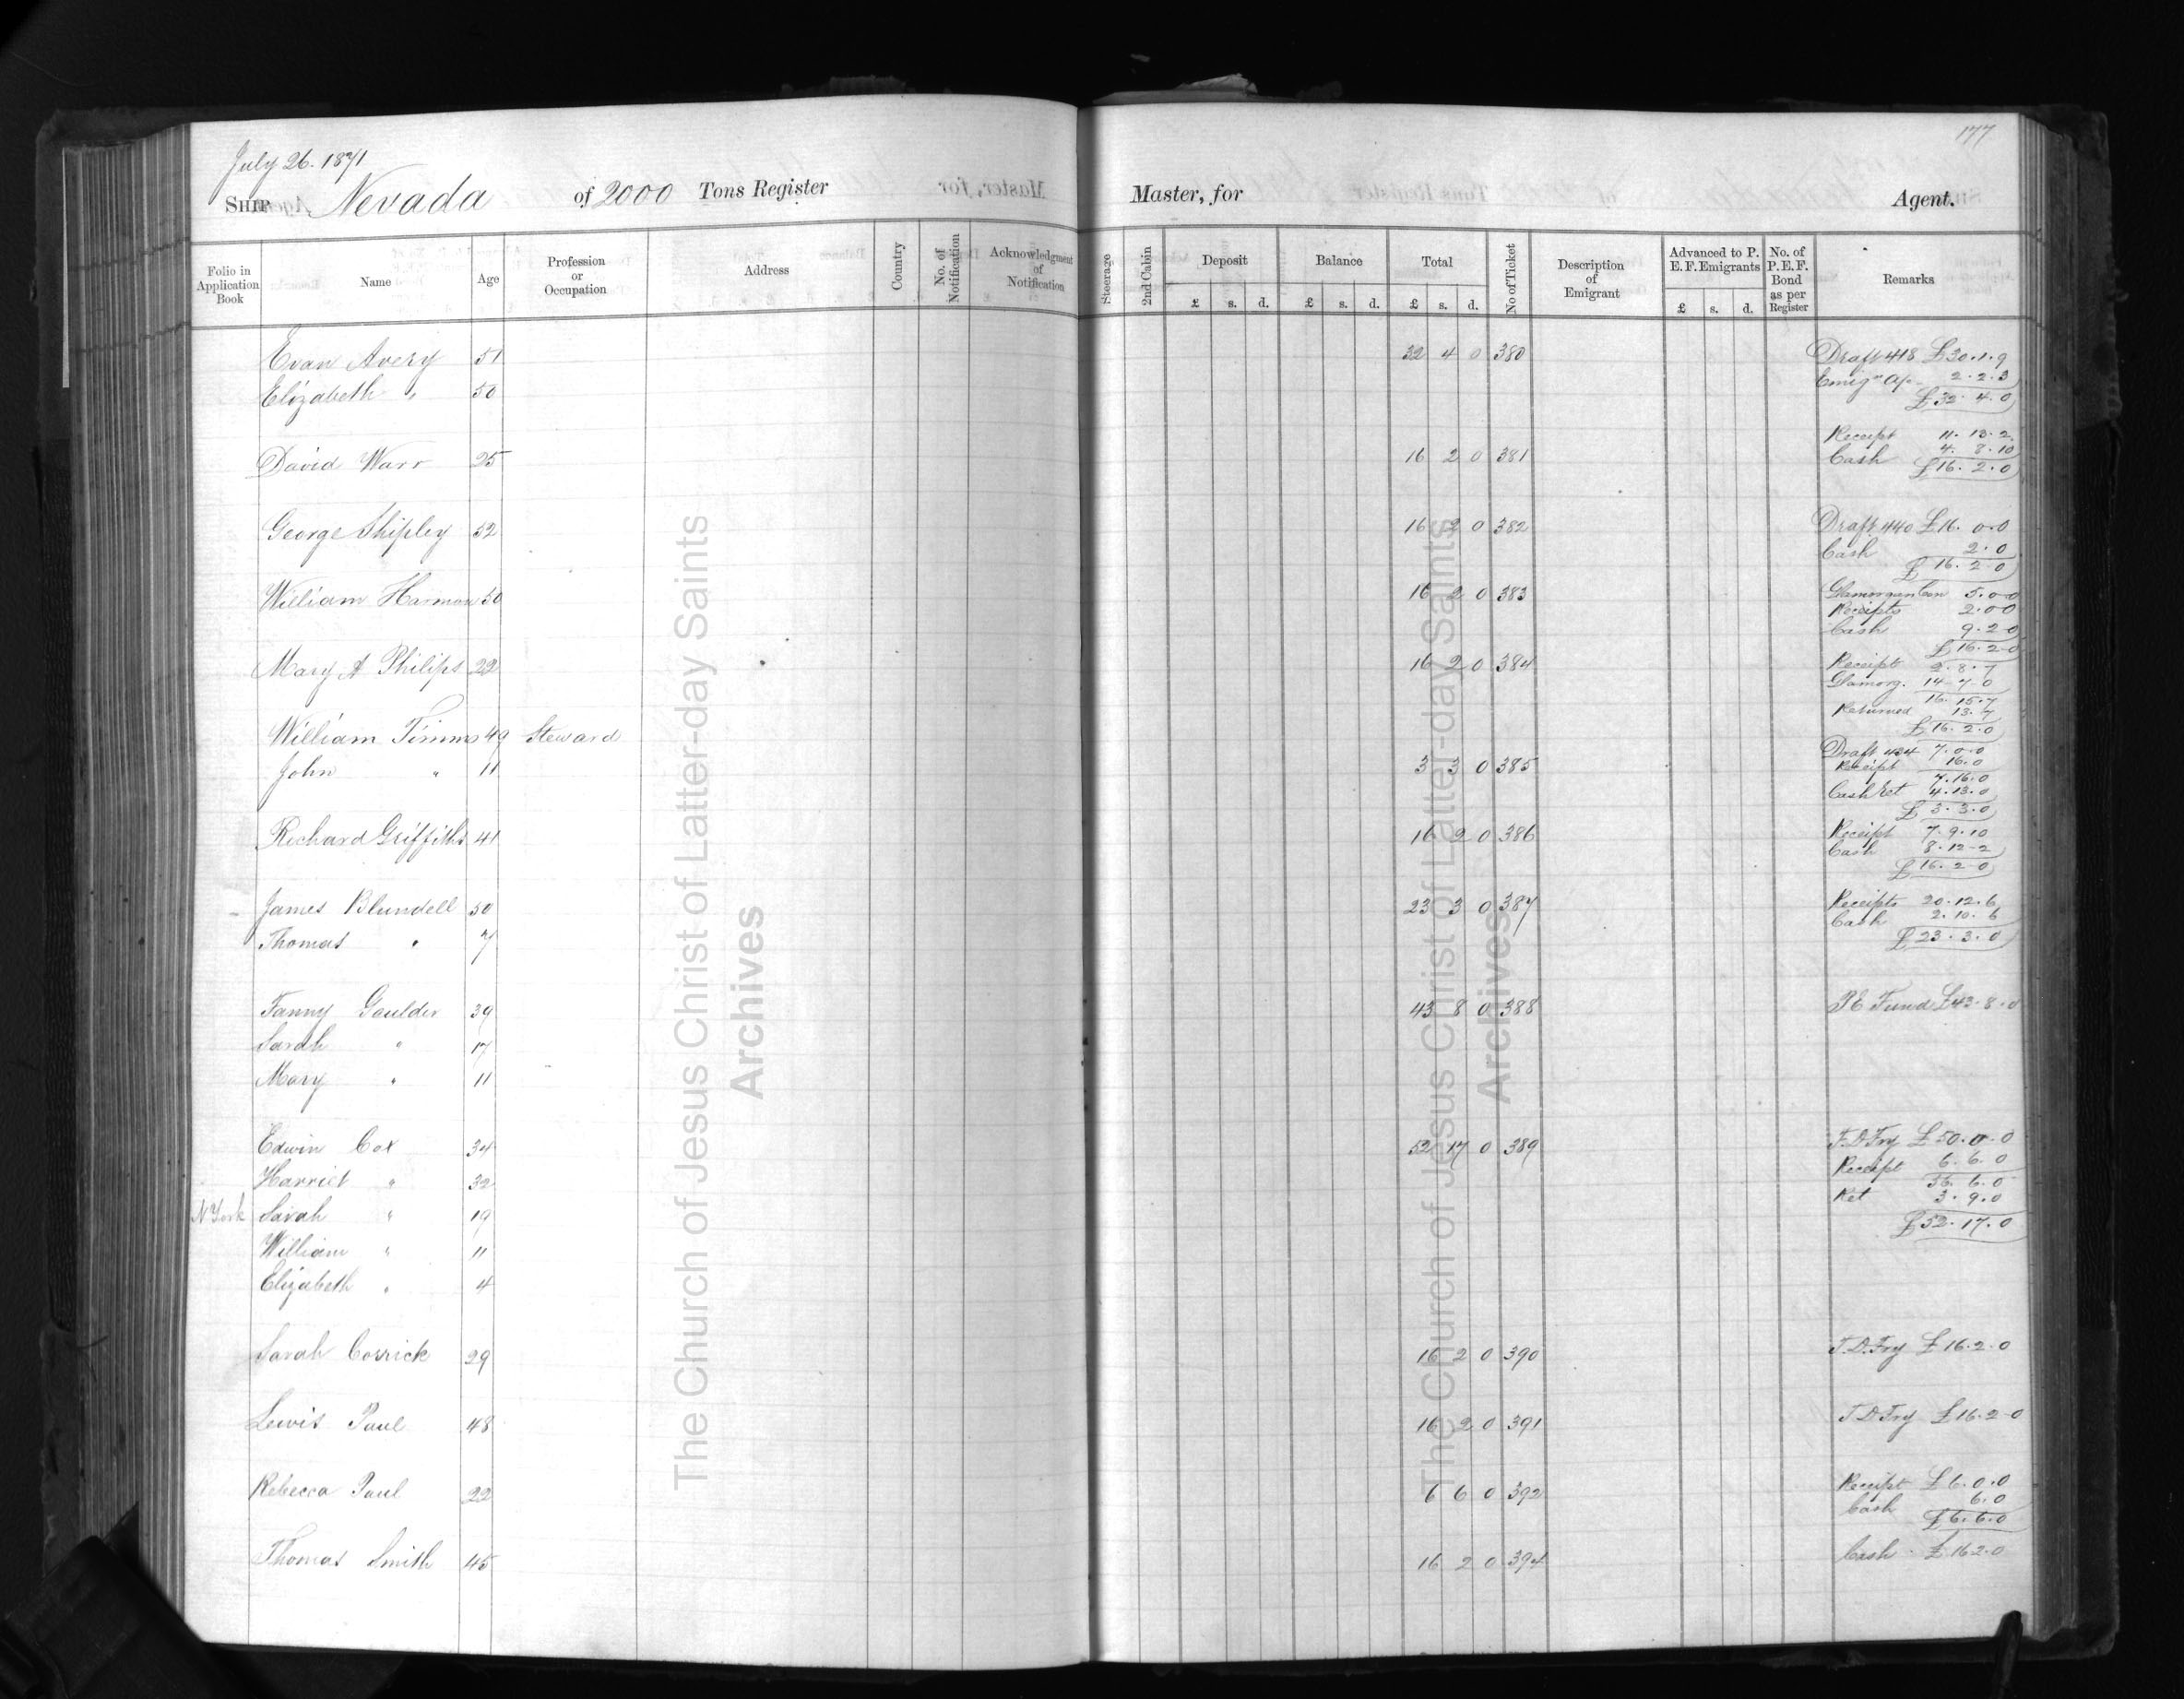 177
July 26. 1871
SHIP Nevada of 2000 Tons Register
Master, for Agent.
Folio in Application Book Name Age Profession or Occupation Address Country No. of Notification Acknowledgment of Notification Steerage 2nd Cabin Deposit Balance Total No of Ticket Description of Emigrant Advanced to P. E. F. Emigrants No. of P. E. F. Bond as per Register Remarks
£ s. d. £ s. d. £ s. d. £ s. d.
Evan Avery 51 32 4 0 380 Draft 418 £30.1.9
Emign a/c 2.2.3
Elizabeth " 50 £32.4.0
Receipt 11.13.2
David Warr 25 16 2 0 381 Cash 4.8.10
£16.2.0
George Shipley 52 16 2 0 382 Draft 440 £16.0.0
Cash 2.0
£16.2.0
William Harman 50 16 2 0 383 Glamorgan Con 5.0.0
Receipts 2.0.0
Cash 9.2.0
£16.2.0
Mary A Philips 22 16 2 0 384 Receipt 2.8.7
Glamorg. 14.7.0
16.15.7
Returned 13.7
£16.2.0
William Timms 49 Steward
Draft 434 7.0.0
John " 11 3 3 0 385 Receipt 16.0
7.16.0
Cash Ret 4.13.0
£3.3.0
Richard Griffiths 41 16 2 0 386 Receipt 7.9.10
Cash 8.12.2
£16.2.0
James Blundell 50 23 3 0 387 Receipts 20.12.6
Cash 2.10.6
Thomas " 7 £23.3.0
Fanny Goulder 39 43 8 0 388 P E Fund £43.8.0
Sarah " 17
Mary " 11
Edwin Cox 34 52 17 0 389 T.D.Fry £50.0.0
Receipt 6.6.0
Harriet " 32 56.6.0
Ret 3.9.0
N York Sarah " 19 £52.17.0
William " 11
Elizabeth " 4
Sarah Corrick 29 16 2 0 390 T.D.Fry £16.2.0
Lewis Paul 48 16 2 0 391 T D Fry £16.2.0
Rebecca Paul 22 6 6 0 392 Receipt £6.0.0
Cash 6.0
£6.6.0
Thomas Smith 45 16 2 0 394 Cash £16.2.0
The Church of Jesus Christ of Latter-day Saints
Archives
The Church of Jesus Christ of Latter-day Saints
Archives